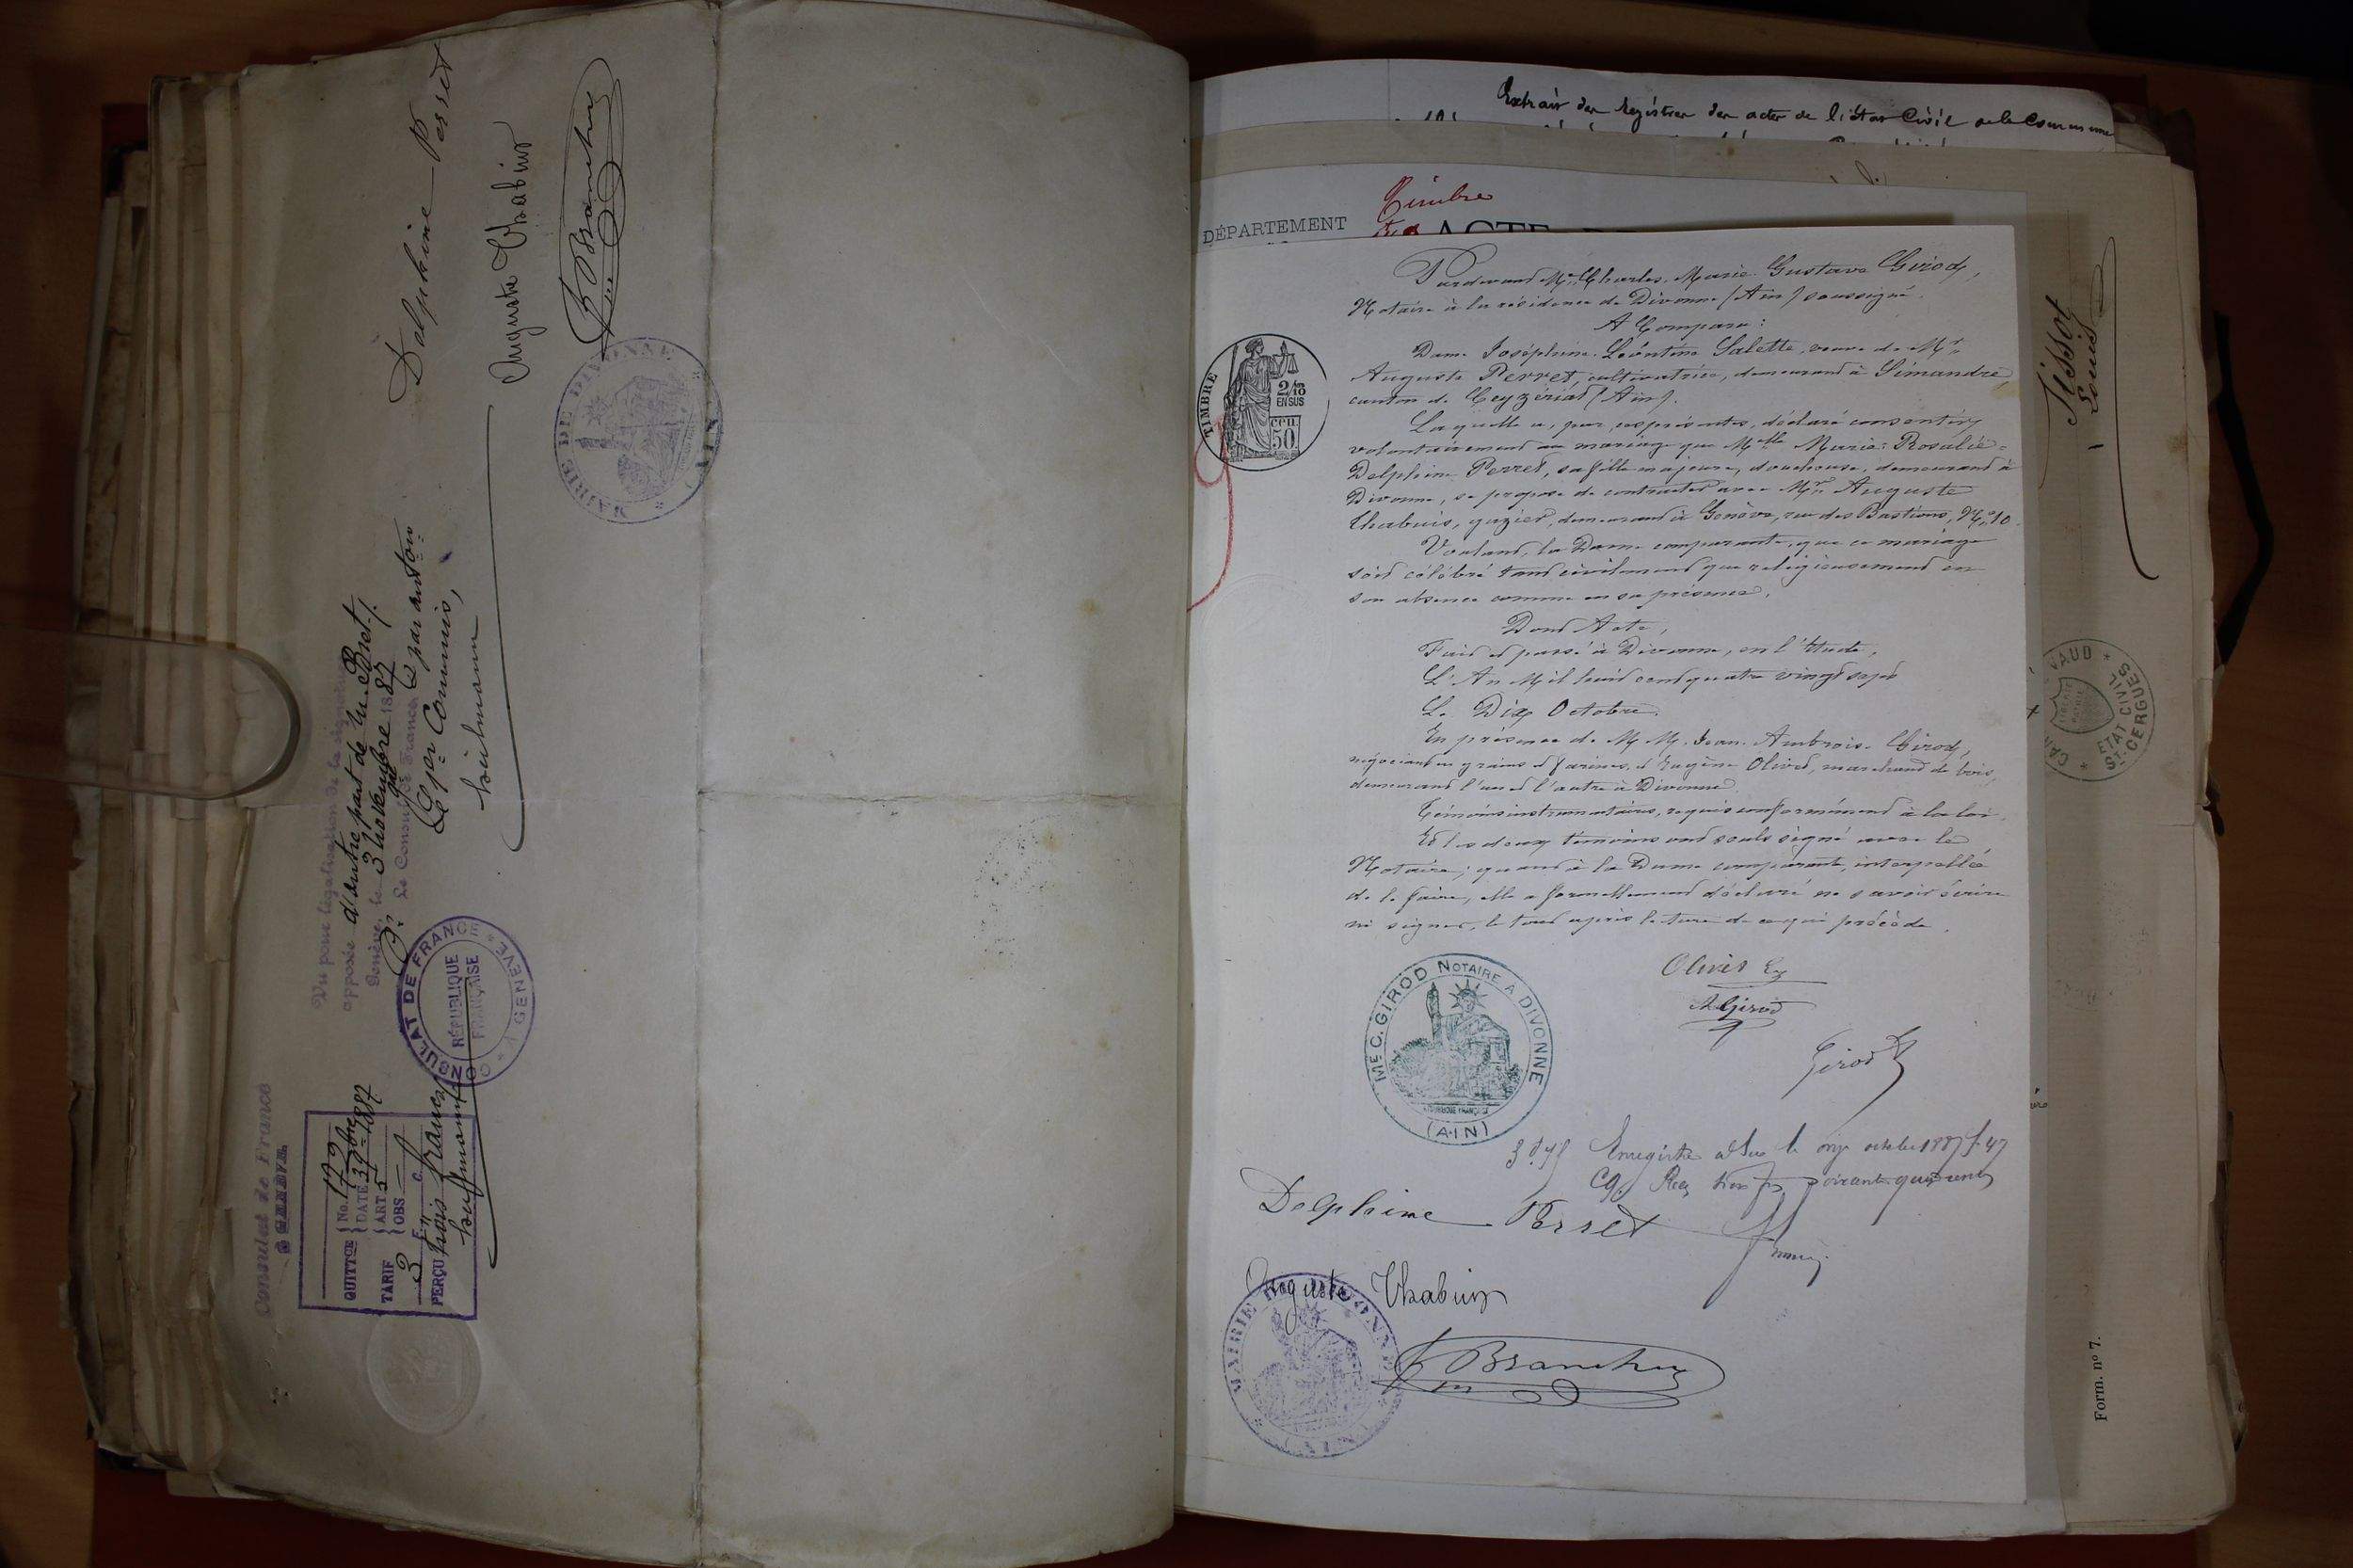 Delphine Perret
Auguste Chabuis
Branchu
MAIRIE DE DIVONNE
(AIN)
Vu pour légalisation de la signature
apposée d'autre part de Mr. Bret./.
Genève, le 3 novembre 1887
Le Consul de France
par auton
Le 1er Commis,
CONSULAT DE FRANCE
RÉPUBLIQUE
FRANÇAISE
A GENÈVE
Consulat de France
à GENÈVE
QUITTCE No. 179
DATE 3 9bre 1887
TARIF ART 5
OBS
3 F. C.
PERÇU trois francs
Extrait des Registres des actes de l'État Civil de la Commune
DÉPARTEMENT
Timbre
ACTE
TIMBRE
2/10
EN SUS
50
Pardevant Me. Charles-Marie-Gustave Girod,
Notaire à la résidence de Divonne (Ain) soussigné.
A Comparu:
Dame Joséphine-Léontine Salette, veuve de Mr.
Auguste Perret, cultivatrice, demeurant à Simandre
canton de Ceyzériat (Ain).
Laquelle a, par ces présentes, déclaré consentir
volontairement au mariage que Melle Marie-Rosalie-
Delphine Perret, sa fille majeure, doucheuse, demeurant à
Divonne, se propose de contracter avec Mr. Auguste
Chabuis, gazier, demeurant à Genève, rue des Bastions, No. 10.
Voulant, la Dame comparante, que ce mariage
soit célébré tant civilement que religieusement en
son absence comme en sa présence.
Dont Acte,
Fait et passé à Divonne, en l'Etude,
L'An Mil huit cent quatre vingt sept
Le Dix Octobre.
En présence de M.M. Jean-Ambroise Girod,
négociant en grains et farines, et Eugène Olivet, marchand de bois,
demeurant l'un et l'autre à Divonne.
Témoins instrumentaires, requis conformément à la loi.
Et les deux témoins ont seuls signé avec le
Notaire; quant à la Dame comparante, interpellée
de le faire, elle a formellement déclaré ne savoir écrire
ni signer, le tout après lecture de ce qui précède.
Olivet Eg
A Girod
Girod
ME C. GIROD NOTAIRE A DIVONNE
RÉPUBLIQUE FRANÇAISE
(AIN)
Enregistré à le onze octobre 1887 f. 47
Delphine Perret
Auguste Chabuis
Branchu
MAIRIE DE DIVONNE
(AIN)
Tissot
Louis
VAUD
LIBERTÉ
PATRIE
ETAT CIVIL
ST CERGUES
Form. no 7.